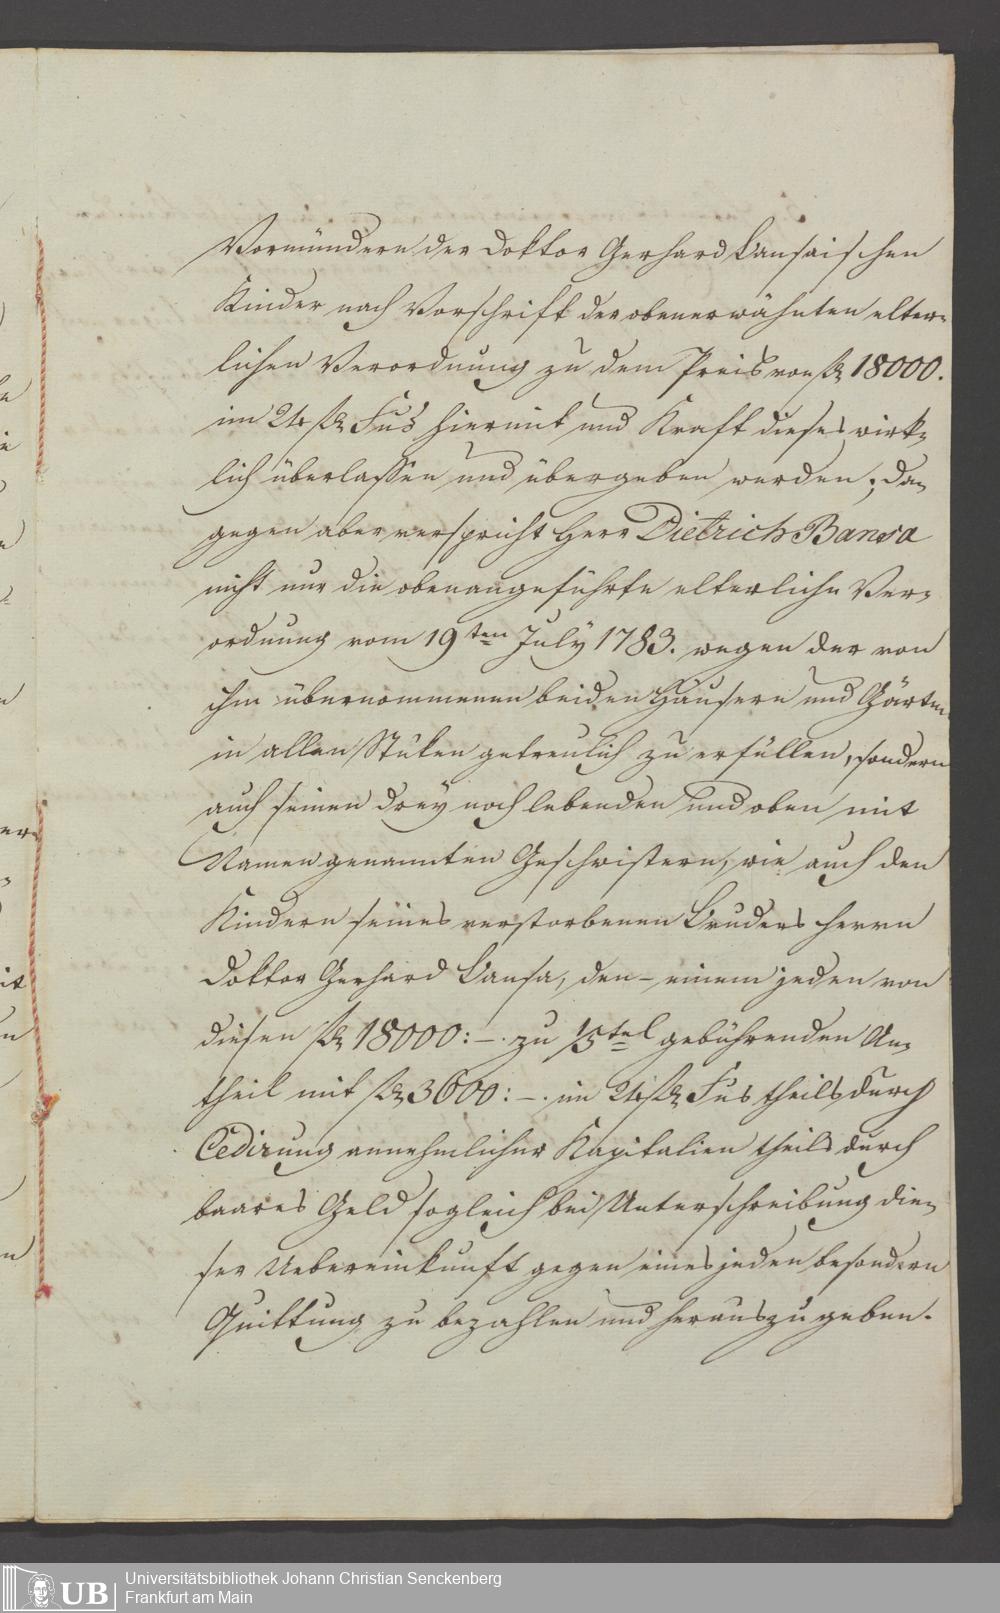 Vormündern der Doktor Gerhard Bansaischen
Kinder nach Vorschrift der obenerwähnten elter-
lichen Verordnung zu dem Preis von fl 18000.
im 24 fl Fus hiermit und Kraft dieses wirk-
lich überlassen und übergeben werden; da-
gegen aber verspricht Herr Dietrich Bansa
nicht nur die obenangeführte elterliche Ver-
ordnung vom 19ten July 1783. wegen der von
ihm übernommenen beiden Häusern und Gärten
in allen Stüken getreulich zu erfüllen, sondern
auch seinen drey noch lebenden und oben mit
Namen genannten Geschwistern, wie auch den
Kindern seines verstorbenen Bruders Herrn
Doktor Gerhard Bansa, den - einem jeden von
diesen fl 18000:-. zu 1/5tel gebührenden An-
theil mit fl 3600:-. im 24 fl Fus theils durch
Cedirung annehmlicher Kapitalien theils durch
baares Geld sogleich bei Unterschreibung die-
ser Uebereinkunft gegen eines jeden besondern
Quittung zu bezahlen und herauszugeben.
UB
Universitätsbibliothek Johann Christian Senckenberg
Frankfurt am Main